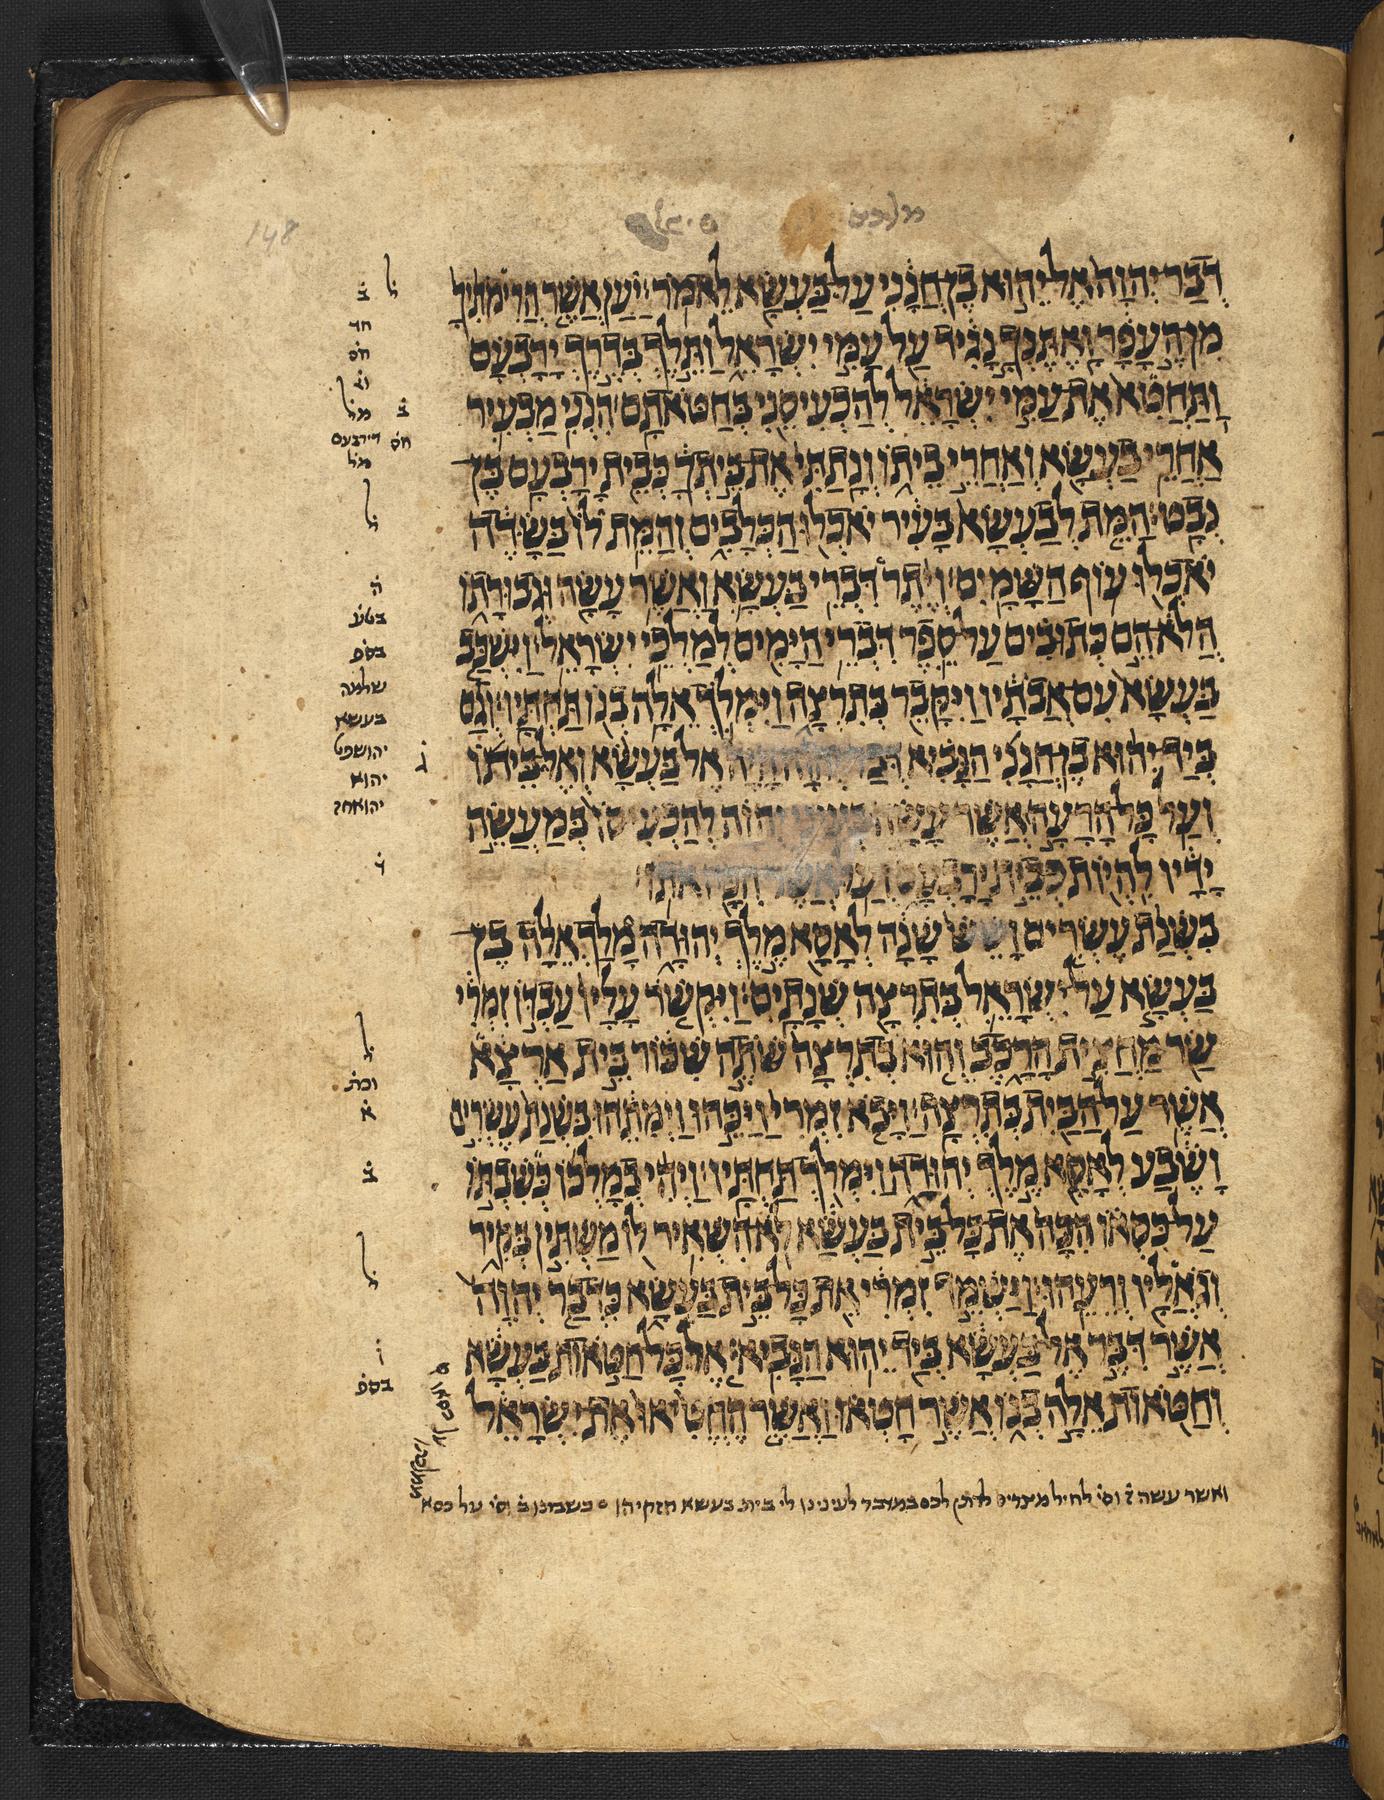 מלכים
148
דְּבַר יְהוָה אֶל יֵהוּא בֶן חֲנָנִי עַל בַּעְשָׁא לֵאמֹר יַעַן אֲשֶׁר הֲרִימֹתִיךָ
מִן הֶעָפָר וָאֶתֶּנְךָ נָגִיד עַל עַמִּי יִשְׂרָאֵל וַתֵּלֶךְ בְּדֶרֶךְ יָרָבְעָם
וַתַּחֲטִא אֶת עַמִּי יִשְׂרָאֵל לְהַכְעִיסֵנִי בְּחַטֹּאתָם הִנְנִי מַבְעִיר
אַחֲרֵי בַעְשָׁא וְאַחֲרֵי בֵיתוֹ וְנָתַתִּי אֶת בֵּיתְךָ כְּבֵית יָרָבְעָם בֶּן
נְבָט הַמֵּת לְבַעְשָׁא בָּעִיר יֹאכְלוּ הַכְּלָבִים וְהַמֵּת לוֹ בַּשָּׂדֶה
יֹאכְלוּ עוֹף הַשָּׁמָיִם וְיֶתֶר דִּבְרֵי בַעְשָׁא וַאֲשֶׁר עָשָׂה וּגְבוּרָתוֹ
הֲלֹא הֵם כְּתוּבִים עַל סֵפֶר דִּבְרֵי הַיָּמִים לְמַלְכֵי יִשְׂרָאֵל וַיִּשְׁכַּב
בַּעְשָׁא עִם אֲבֹתָיו וַיִּקָּבֵר בְּתִרְצָה וַיִּמְלֹךְ אֵלָה בְנוֹ תַּחְתָּיו וְגַם
בְּיַד יֵהוּא בֶן חֲנָנִי הַנָּבִיא דְּבַר יְהוָה הָיָה אֶל בַּעְשָׁא וְאֶל בֵּיתוֹ
וְעַל כָּל הָרָעָה אֲשֶׁר עָשָׂה בְּעֵינֵי יְהוָה לְהַכְעִיסוֹ בְּמַעֲשֵׂה
יָדָיו לִהְיוֹת כְּבֵית יָרָבְעָם וְעַל אֲשֶׁר הִכָּה אֹתוֹ
בִּשְׁנַת עֶשְׂרִים וָשֵׁשׁ שָׁנָה לְאָסָא מֶלֶךְ יְהוּדָה מָלַךְ אֵלָה בֶן
בַּעְשָׁא עַל יִשְׂרָאֵל בְּתִרְצָה שְׁנָתָיִם וַיִּקְשֹׁר עָלָיו עַבְדּוֹ זִמְרִי
שַׂר מַחֲצִית הָרָכֶב וְהוּא בְתִרְצָה שֹׁתֶה שִׁכּוֹר בֵּית אַרְצָא
אֲשֶׁר עַל הַבַּיִת בְּתִרְצָה וַיָּבֹא זִמְרִי וַיַּכֵּהוּ וַיְמִתֵהוּ בִּשְׁנַת עֶשְׂרִים
וָשֶׁבַע לְאָסָא מֶלֶךְ יְהוּדָה וַיִּמְלֹךְ תַּחְתָּיו וַיְהִי בְמָלְכוֹ כְּשִׁבְתּוֹ
עַל כִּסְאוֹ הִכָּה אֶת כָּל בֵּית בַּעְשָׁא לֹא הִשְׁאִיר לוֹ מַשְׁתִּין בְּקִיר
וְגֹאֲלָיו וְרֵעֵהוּ וַיַּשְׁמֵד זִמְרִי אֵת כָּל בֵּית בַּעְשָׁא כִּדְבַר יְהוָה
אֲשֶׁר דִּבֶּר אֶל בַּעְשָׁא בְּיַד יֵהוּא הַנָּבִיא אֶל כָּל חַטֹּאות בַּעְשָׁא
וְחַטֹּאות אֵלָה בְנוֹ אֲשֶׁר חָטְאוּ וַאֲשֶׁר הֶחֱטִיאוּ אֶת יִשְׂרָאֵל
ל
ב
חד
חס
מל
ב
חס דירבעם
מל
ל
ה
בטע
בספ
שלמה
בעשא
יהושפט
יהוא
יהואחז
ל
וכת
א
ב
ל
בספ
ואשר עשה ז וסי לחיל מצרים לכם במדבר לעינינו לי בית בעשא חזקיהו על כסא